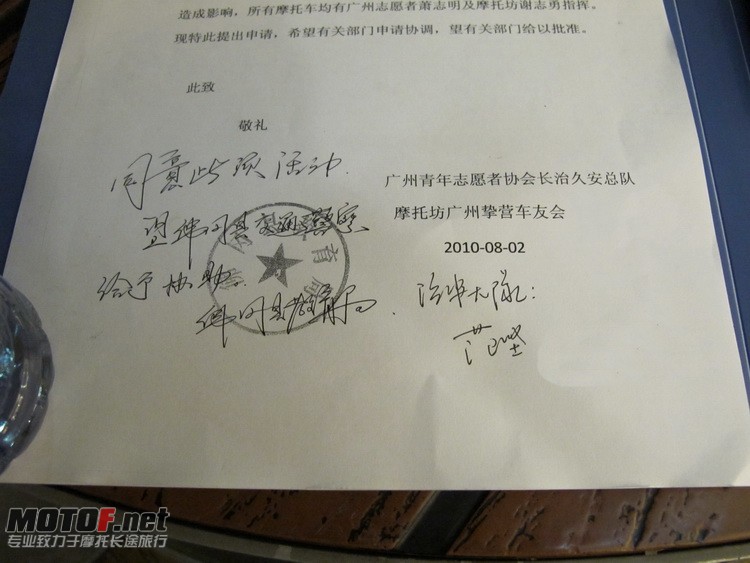 造成影响，所有摩托车均有广州志愿者萧志明及摩托坊谢志勇指挥。
现特此提出申请，希望有关部门申请协调，望有关部门给以批准。
此致
敬礼
同意此项活动.
广州青年志愿者协会长治久安总队
望 县交通警察
摩托坊广州挚营车友会
2010-08-02
给予协助.
县教育局
育局
大队:
MOTOF.net
专业致力于摩托长途旅行